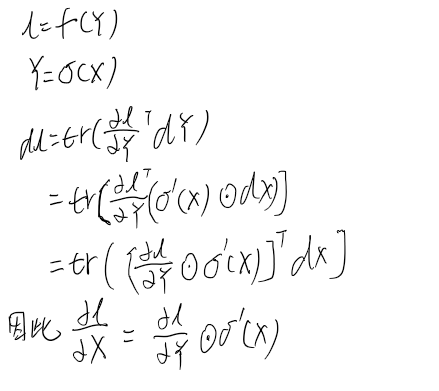 l=f(Y)
Y=σ(X)
dl=tr(∂l/∂Y^T dY)
=tr[∂l/∂Y^T(σ'(x)⊙dx)]
=tr([∂l/∂Y⊙σ'(x)]^T dx]
因此 ∂l/∂X = ∂l/∂Y ⊙σ'(X)